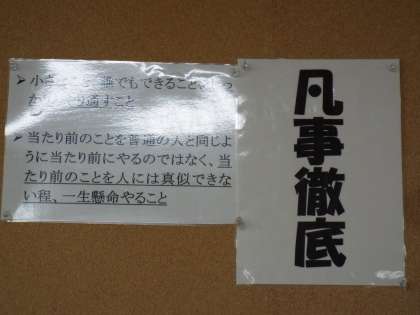 小 誰でもできること、
すこと
当たり前のことを普通の人と同じよ
うに当たり前にやるのではなく、当
たり前のことを人には真似できな
い程、一生懸命やること
凡事徹底